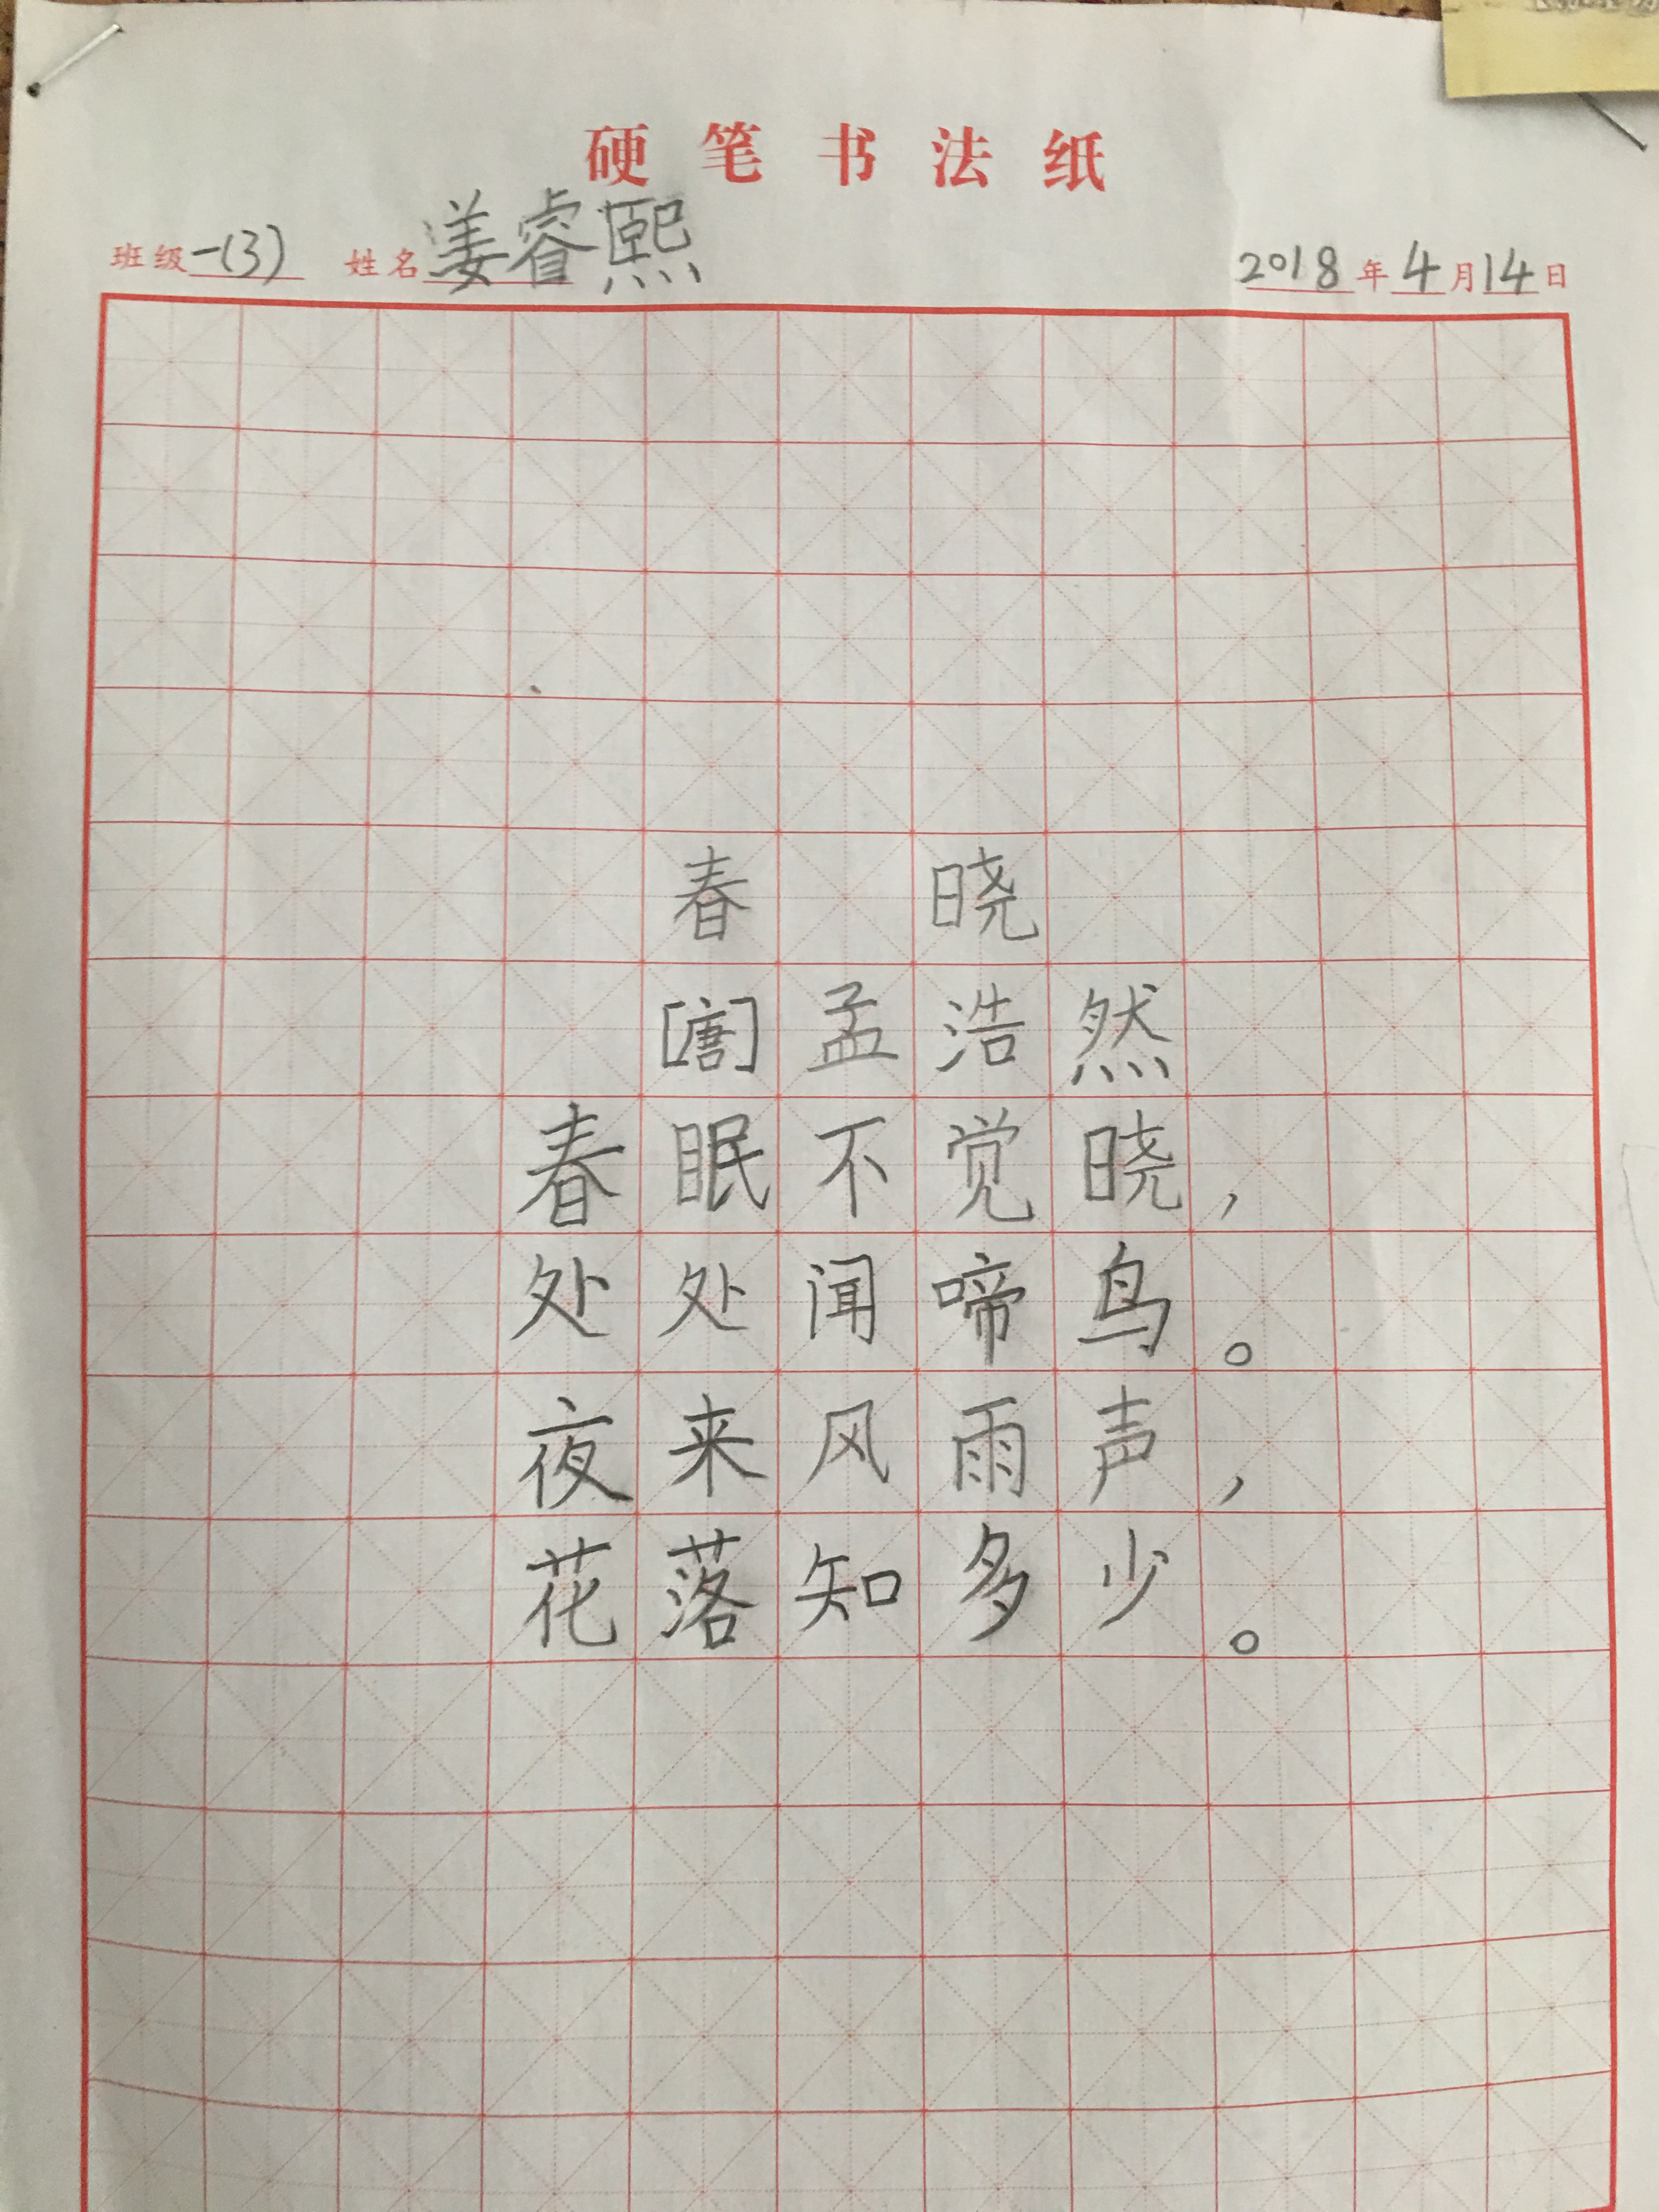 硬笔书法纸
班级一(3) 姓名姜睿熙 2018年4月14日
春 晓
[唐]孟浩然
春眠不觉晓,
处处闻啼鸟。
夜来风雨声,
花落知多少。